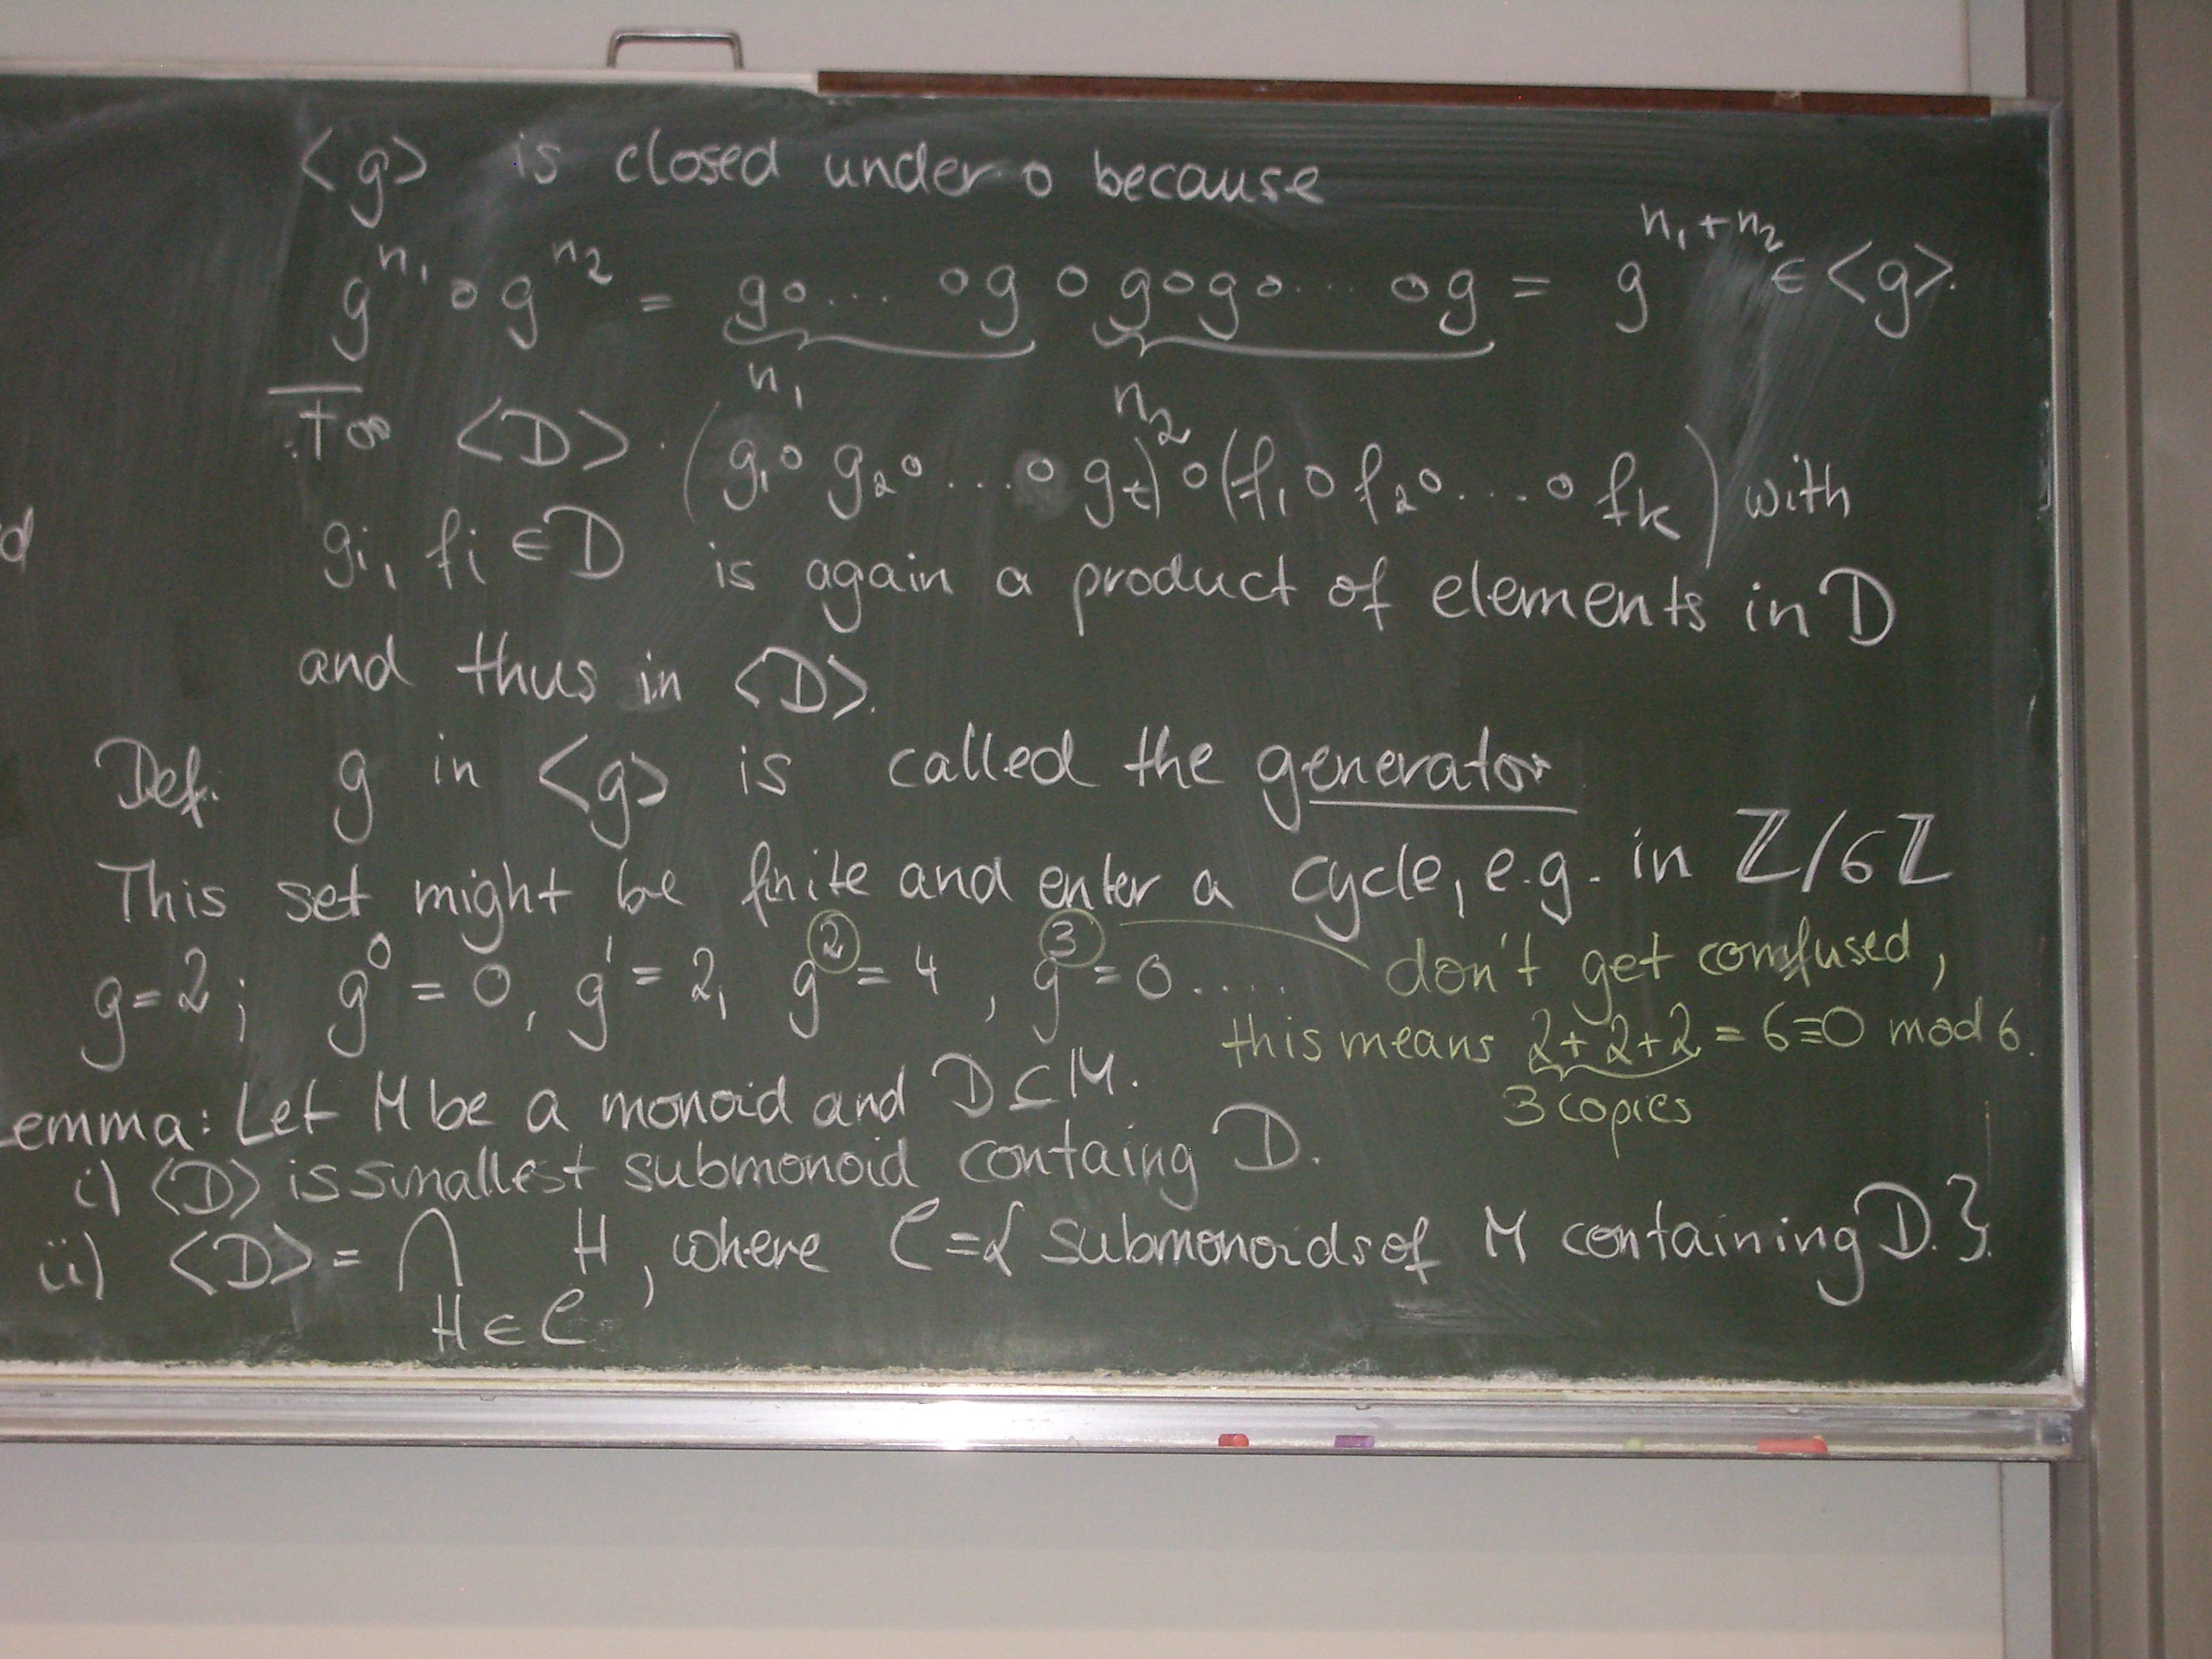 <g> is closed under ∘ because
g^{n₁} ∘ g^{n₂} = g∘... ∘g ∘ g∘g∘... ∘g = g^{n₁+n₂} ∈ <g>.
n₁ n₂
For <D> (g₁∘ g₂∘ ... ∘ g_t) ∘ (f₁∘ f₂∘ .... ∘ f_k) with
d
gi, fi ∈ D is again a product of elements in D
and thus in <D>.
Def. g in <g> is called the generator
This set might be finite and enter a cycle, e.g. in ℤ/6ℤ
g=2; g⁰ = 0, g¹ = 2, g² = 4, g³ = 0.... don't get comfused,
this means 2+2+2 = 6≡0 mod 6.
3 copies
emma: Let M be a monoid and D ⊆ M.
i) <D> is smallest submonoid containg D.
ii) <D> = ⋂ H, where C = { submonoids of M containing D.}.
H ∈ C